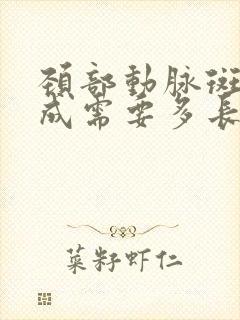 颈部動脉斑
成需要多長
菜籽虾仁